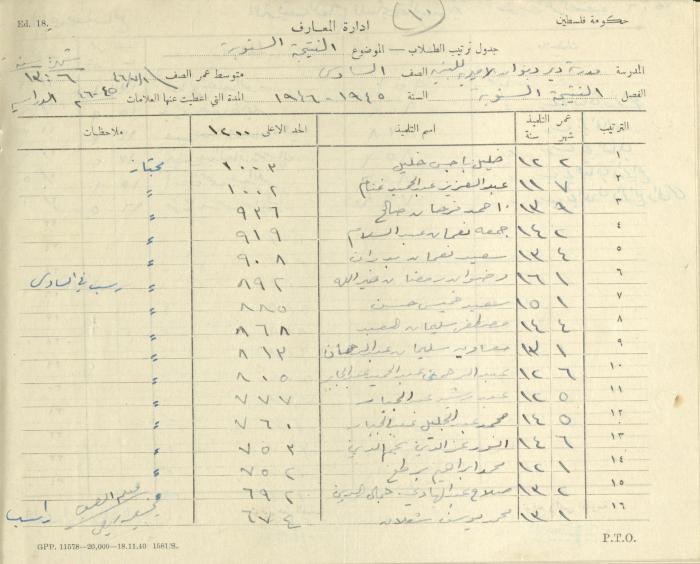 Ed. 18.
(١٠)
حكومة فلسطين
ادارة المعارف
جدول ترتيب الطلاب — الموضوع النتيجة السنوية
المدرسة مدرسة دير ديوان الاميرية للبنين الصف السادس متوسط عمر الصف ١٣٫٦
الفصل النتيجة السنوية السنة ١٩٤٥-١٩٤٦ المدة التي اعطيت عنها العلامات ٤٥-٤٦
الترتيب عمر التلميذ شهر سنة اسم التلميذ الحد الاعلى ١٢٠٠ ملاحظات
١ ٢ ١٢ خليل ناجي خليل ١٠٠٣ يجتاز
٢ ٧ ١١ عبد العزيز عبد الحميد غنام ١٠٠٢ "
٣ ٩ ١٣ احمد فرحان صالح ٩٣٦ "
٤ ٢ ١٤ جمعه نعمان عبد السلام ٩١٩ "
٥ ٤ ١٣ سعيد نعمان بدران ٩٠٨ "
٦ ١ ١٦ رضوان رمضان خير الله ٨٩٢ " رسب في السادس
٧ ١ ١٥ سعيد خميس حسن ٨٨٥ "
٨ ٤ ١٤ مصطفى سليمان ٨٦٨ "
٩ ١ ١٣ سليمان عبد الرحمان ٨١٣ "
١٠ ٦ ١٢ عبد الرحمن عبد الحميد عبد الجابر ٨٠٥ "
١١ ٥ ١٢ عبد الجبار ٧٧٧ "
١٢ ٥ ١٤ محمد عبد الجليل عبد الجبار ٧٦٠ "
١٣ ٦ ١٤ عز الدين نجم الدين ٧٥٣ "
١٤ ١ ١٢ محمد ابراهيم ٧٥٢ "
١٥ ٢ ١٣ صلاح عبد الهادي جمال الدين ٦٩٢ "
١٦ ١ ١٣ محمد يوسف شعلان ٦٧٤ راسب
معلم الصف
GPP. 11578—20,000—18.11.40 1581/S.
P.T.O.